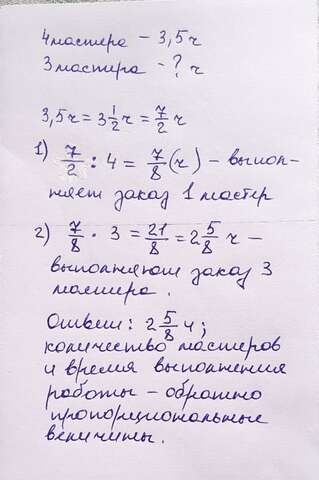 4 мастера - 3,5 ч
3 мастера - ? ч
3,5 ч = 3 1/2 ч = 7/2 ч
1) 7/2 : 4 = 7/8 (ч) - выпол-
няет заказ 1 мастер
2) 7/8 · 3 = 21/8 = 2 5/8 ч -
выполняют заказ 3
мастера.
Ответ: 2 5/8 ч;
количество мастеров
и время выполнения
работы - обратно
пропорциональные
величины.